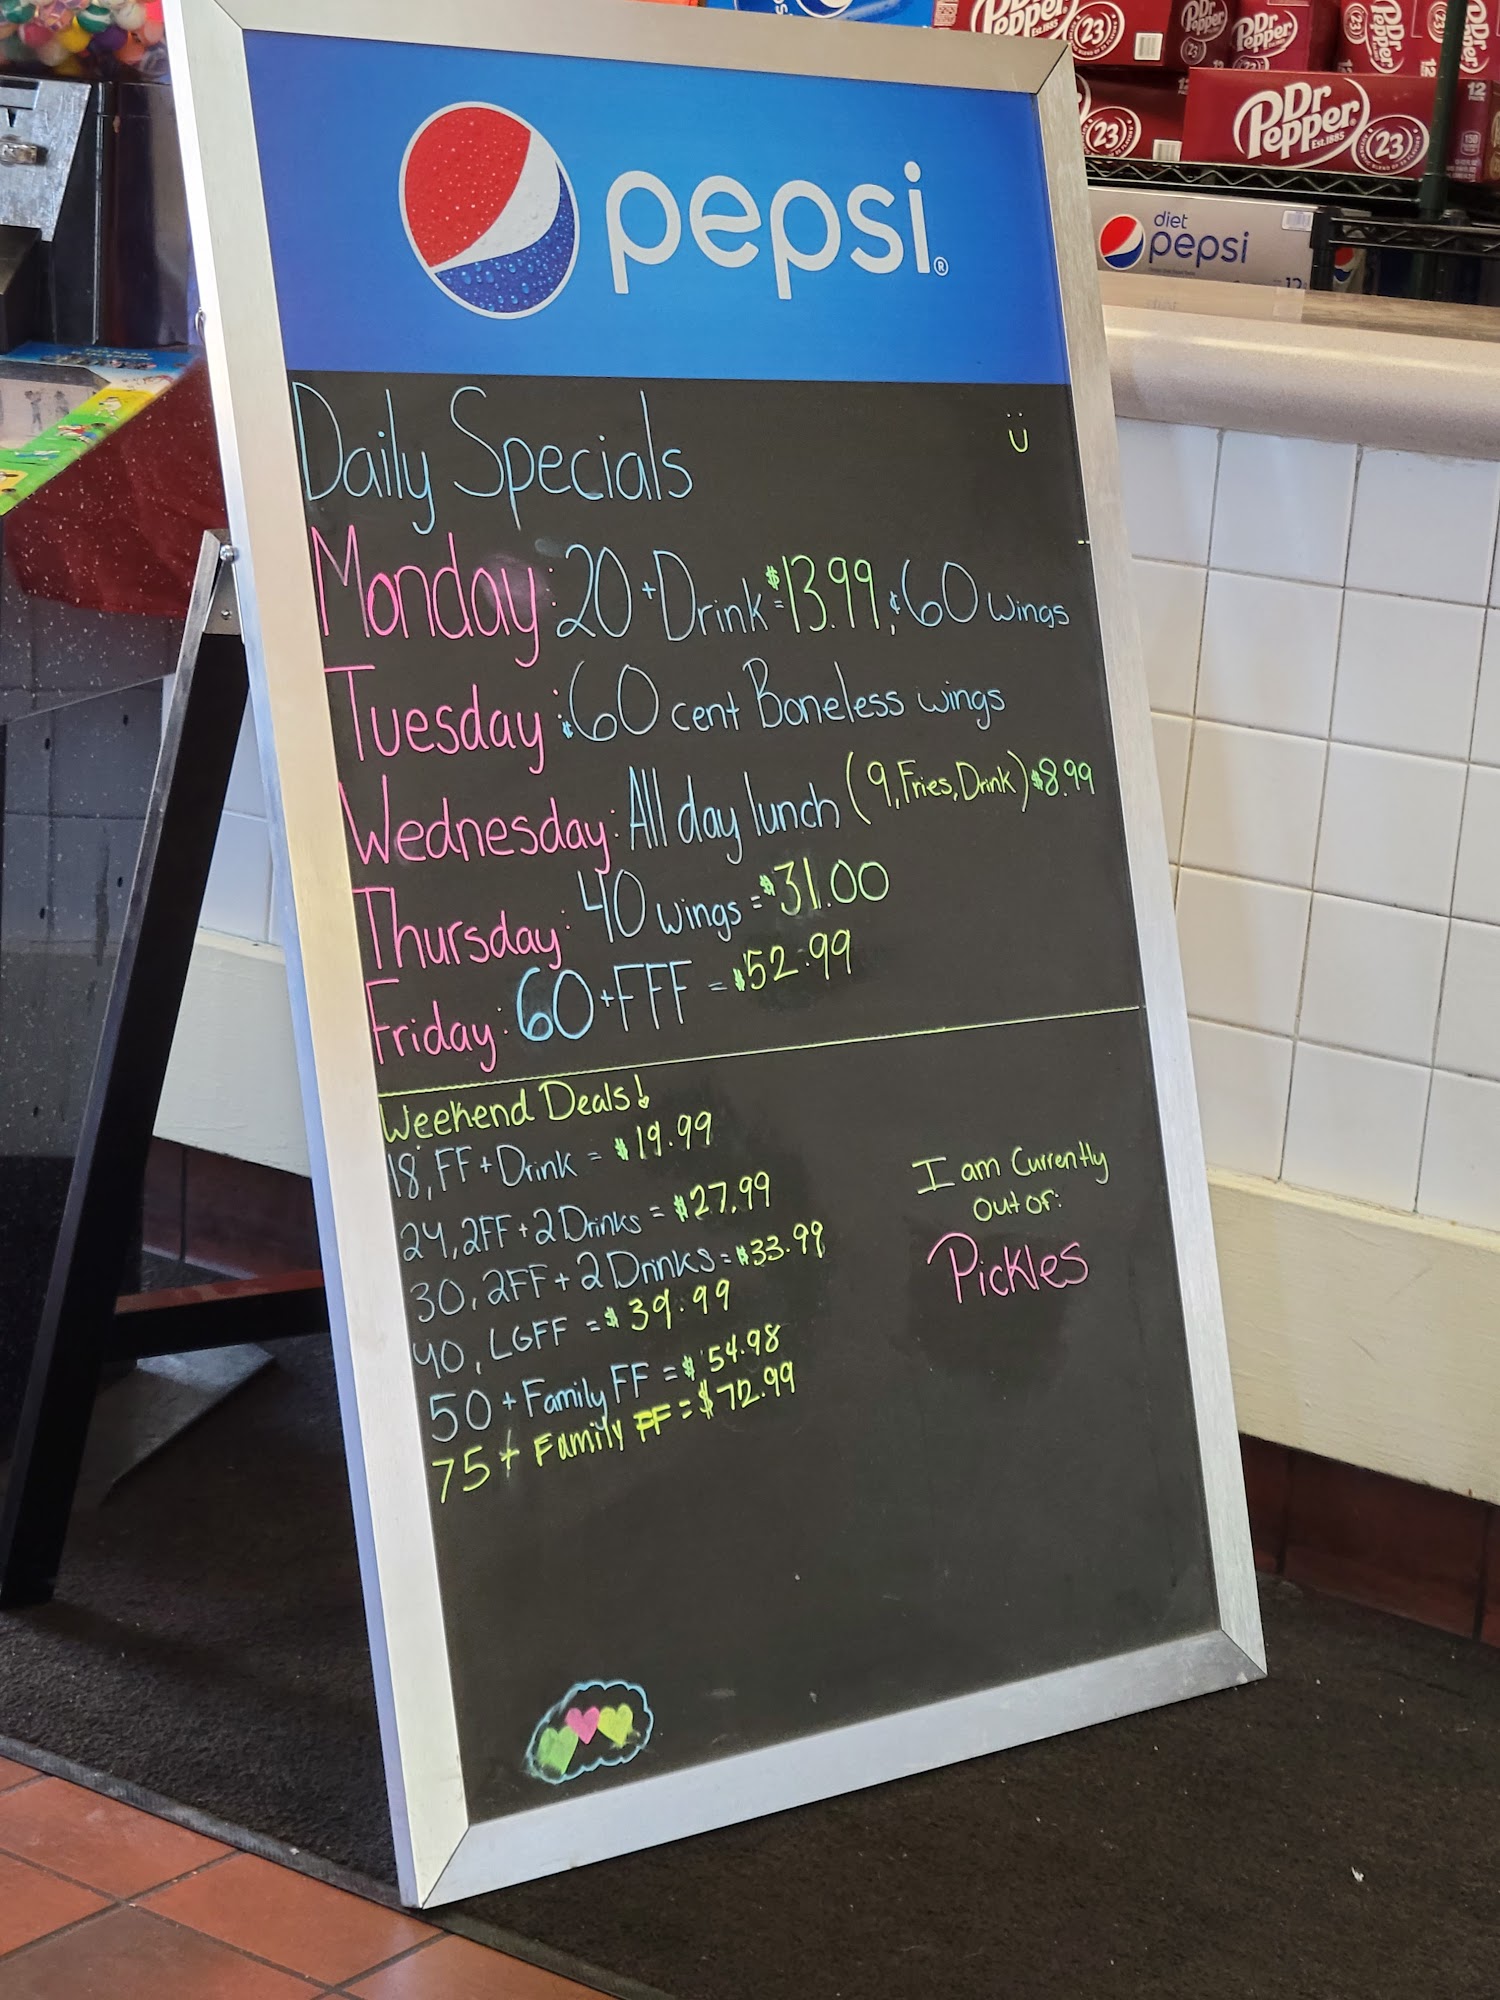 pepsi®
Dr Pepper Est. 1885 23
Dr Pepper 23
23
Dr Pepper
Est. 1885
23
12
diet
pepsi
12
Daily Specials
Monday: 20 + Drink = $13.99, ¢60 wings
Tuesday: ¢60 cent Boneless wings
Wednesday: All day lunch (9, Fries, Drink) $8.99
Thursday: 40 wings = $31.00
Friday: 60 + FFF = $52.99
Weekend Deals!
18, FF + Drink = $19.99
24, 2FF + 2 Drinks = $27.99
30, 2FF + 2 Drinks = $33.99
40, LGFF = $39.99
50 + Family FF = $54.98
75 + Family FF = $72.99
I am Currently
out of:
Pickles